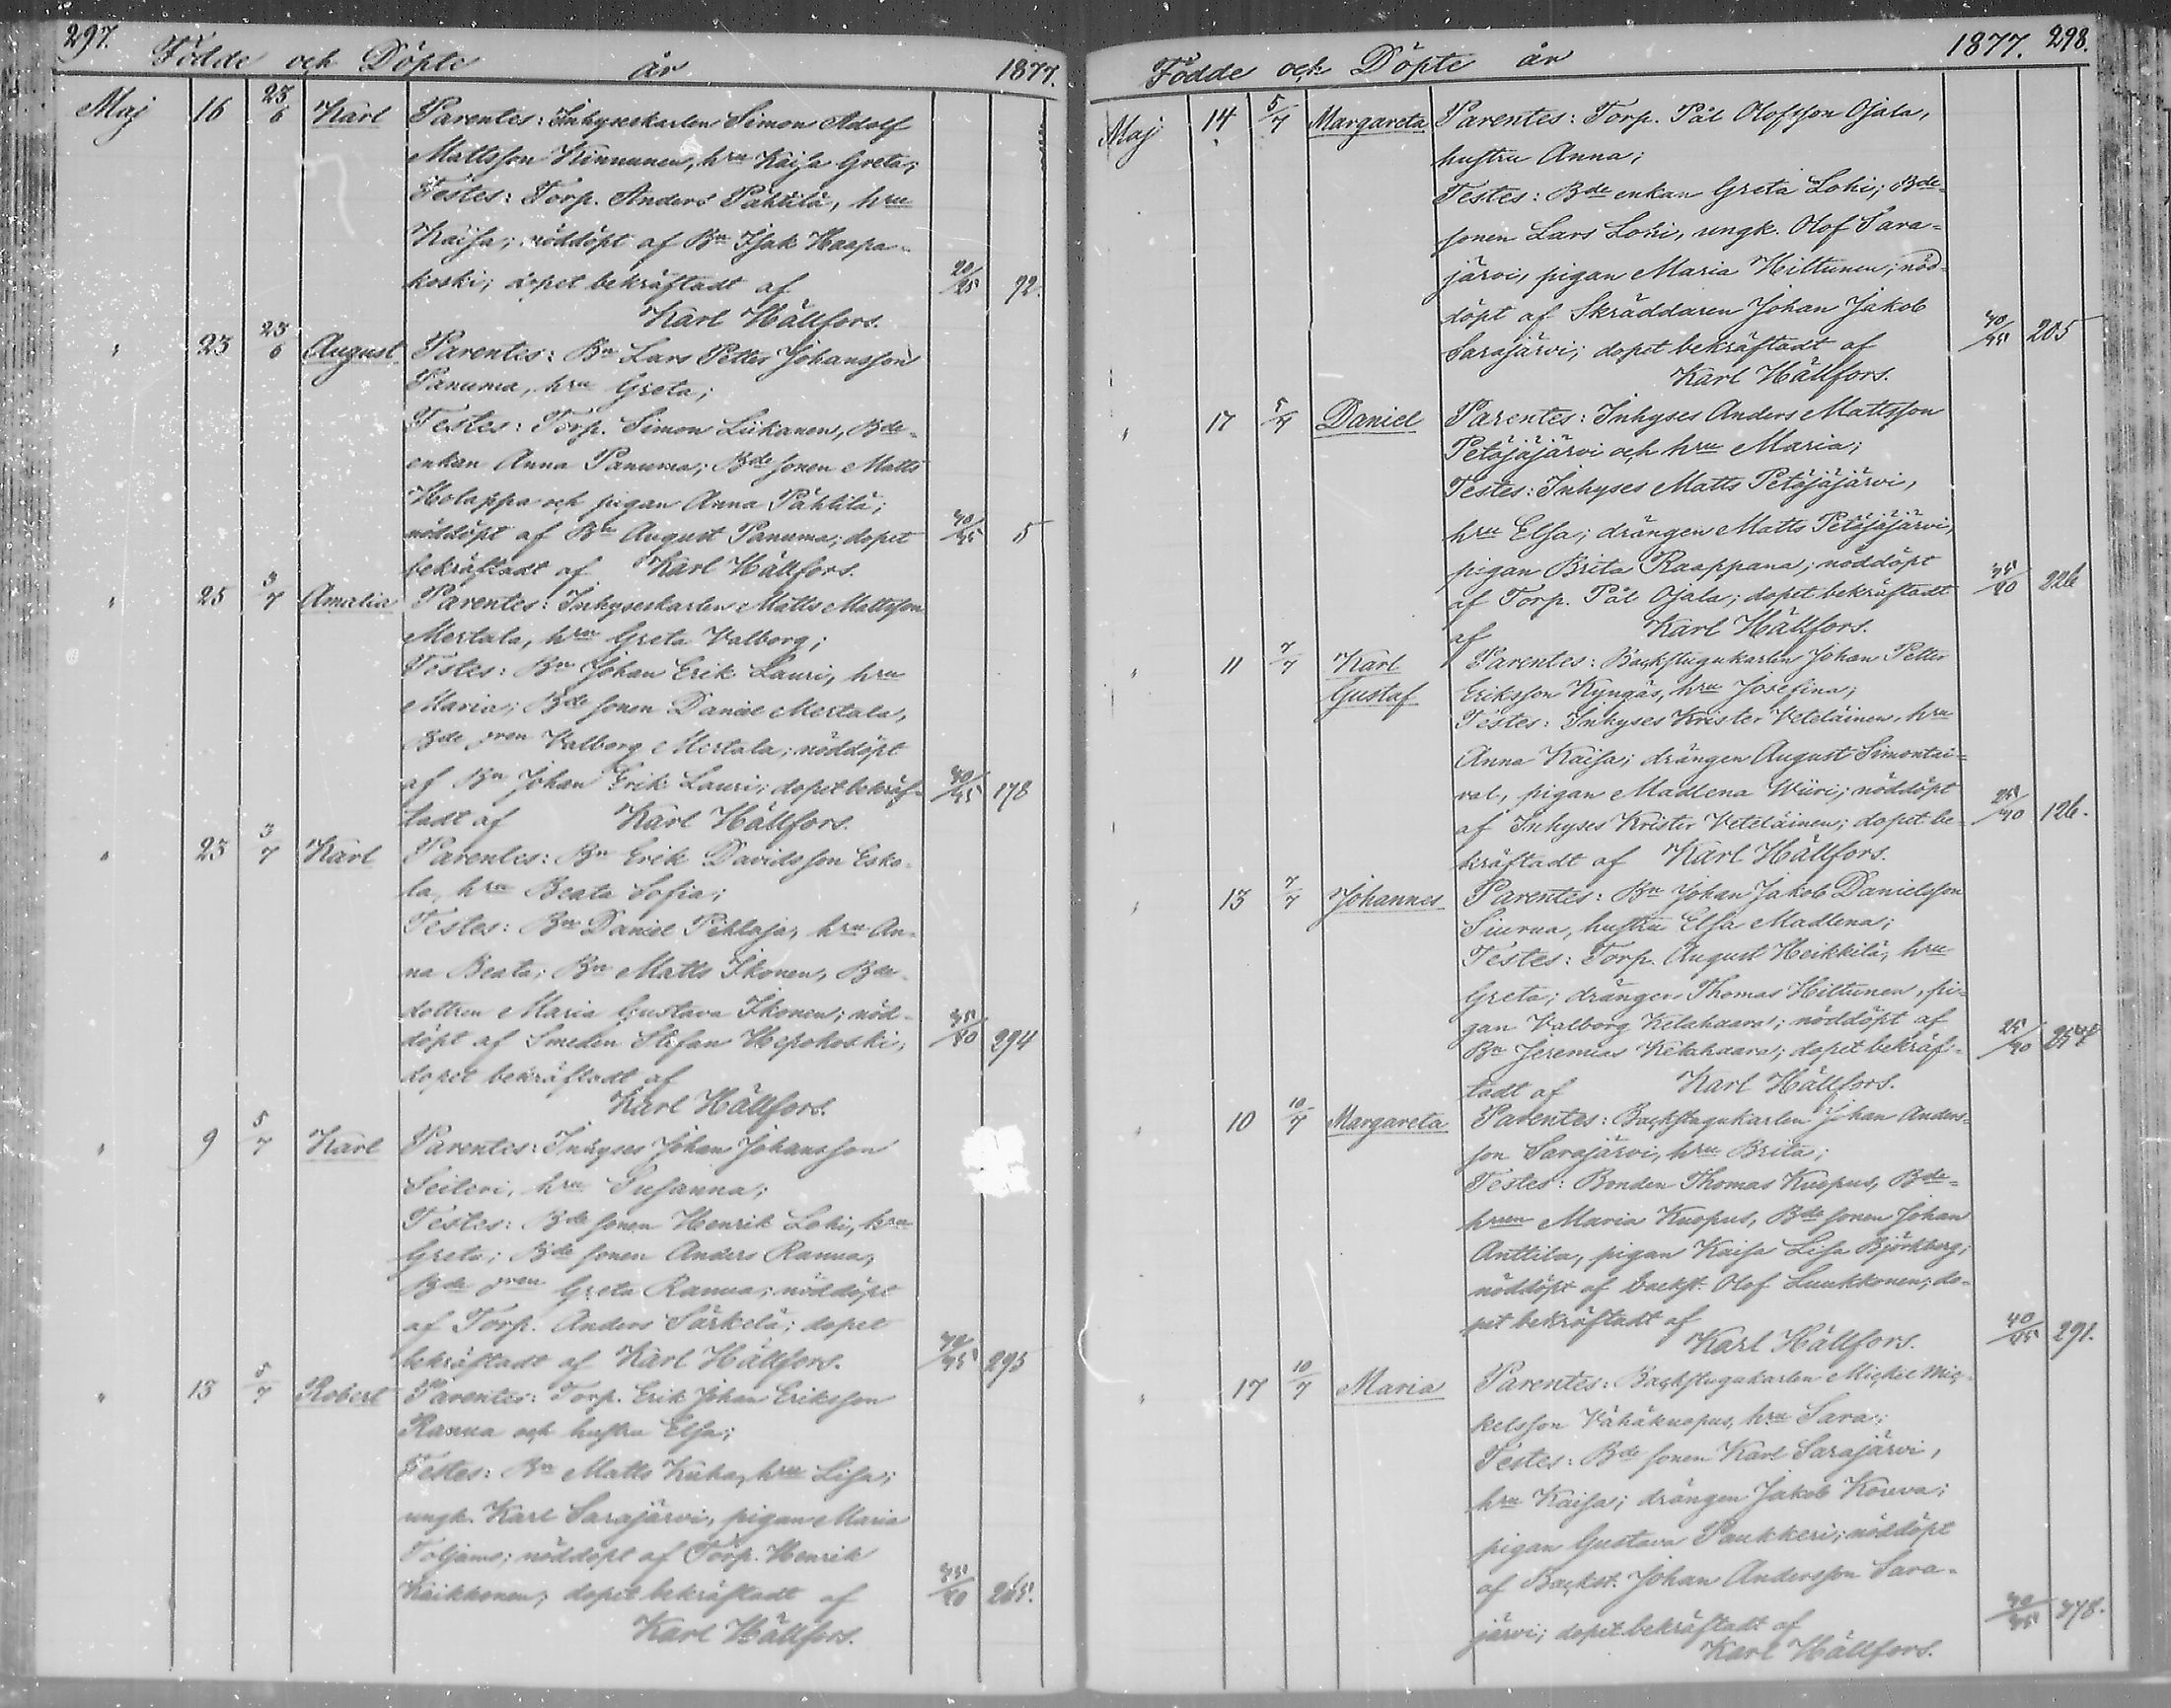 297.
Födde och Döpte år 1877.
Maj 16 23/6 Karl Parentes: Inhyseskarlen Simon Adolf
Mattsson Kinnunen, hru Kaisa Greta;
Testes: Torp. Anders Pähtilä, hru
Kaisa; nöddöpt af Bn Isak Haapa-
koski; dopet bekräftadt af 20/25 92.
Karl Hällfors.
" 23 23/6 August Parentes: Bn Lars Petter Johansson
Panuma, hru Greta;
Testes: Torp. Simon Liikanen, Bde-
enkan Anna Panuma; Bde sonen Matts
Holappa och pigan Anna Pähtilä;
nöddöpt af Bn August Panuma; dopet 40/45 5
bekräftadt af Karl Hällfors.
" 25 3/7 Amalia Parentes: Inhyseskarlen Matts Mattsson
Mertala, hru Greta Valborg;
Testes: Bn Johan Erik Lauri, hru
Maria; Bde sonen Daniel Mertala,
Bde Valborg Mertala; nöddöpt
af Bn Johan Erik Lauri; dopet bekräf- 40/45 178
tadt af Karl Hällfors.
" 23 3/7 Karl Parentes: Bn Erik Davidsson Esko-
la, hru Beata Sofia;
Testes: Bn Daniel Pihlaja, hru An-
na Beata; Bn Matts Ikonen, Bde-
dottren Maria Gustava Ikonen; nöd-
döpt af Smeden Stefan Hepokoski, 35/40 294
dopet bekräftadt af
Karl Hällfors.
" 9 5/7 Karl Parentes: Inhyses Johan Johansson
Seiteri, hru Susanna;
Testes: Bde sonen Henrik Lohi, hru
Greta; Bde sonen Anders Ranua,
Bde Greta Ranua; nöddöpt
af Torp. Anders Särkelä; dopet
bekräftadt af Karl Hällfors. 40/45 295
" 13 5/7 Robert Parentes: Torp. Erik Johan Eriksson
Ranua och hustru Elsa;
Testes: Bn Matts Kuha, hru Lisa;
ungk. Karl Sarajärvi, pigan Maria
Toljamo; nöddöpt af Torp. Henrik
Kaikkonen; dopet bekräftadt af 265.
Karl Hällfors.
298.
Födde och Döpte år 1877.
Maj 14 5/7 Margareta Parentes: Torp. Pål Olofsson Ojala,
hustru Anna;
Testes: Bde enkan Greta Lohi; Bde-
sonen Lars Lohi, ungk. Olof Sara-
järvi, pigan Maria Hiltunen; nöd-
döpt af Skräddaren Johan Jakob
Sarajärvi; dopet bekräftadt af 40/45 205
Karl Hällfors.
" 17 5/7 Daniel Parentes: Inhyses Anders Mattsson
Petäjäjärvi och hru Maria;
Testes: Inhyses Matts Petäjäjärvi,
hru Elsa; drängen Matts Petäjäjärvi,
pigan Brita Raappana; nöddöpt
af Torp. Pål Ojala; dopet bekräftadt 226
af Karl Hällfors.
" 11 7/7 Karl Gustaf Parentes: Backstugukarlen Johan Petter
Eriksson Kyngäs, hru Josefina;
Testes: Inhyses Krister Veteläinen, hru
Anna Kaisa; drängen August Simontai-
val, pigan Madlena Wiiri; nöddöpt
af Inhyses Krister Veteläinen; dopet be- 126.
kräftadt af Karl Hällfors.
" 13 7/7 Johannes Parentes: Bn Johan Jakob Danielsson
Siurua, hustru Elsa Madlena;
Testes: Torp. August Heikkilä, hru
Greta; drängen Thomas Hiltunen, pi-
gan Valborg Kelahaara; nöddöpt af
Bn Jeremias Kelahaara; dopet bekräf-
tadt af Karl Hällfors.
" 10 10/7 Margareta Parentes: Backstugukarlen Johan Anders-
son Sarajärvi, hru Brita;
Testes: Bonden Thomas Kuopus, Bde-
hrun Maria Kuopus, Bde sonen Johan
Anttila, pigan Kaisa Lisa Björkberg;
nöddöpt af backst. Olof Luukkonen; do-
pet bekräftadt af
Karl Hällfors. 291.
" 17 10/7 Maria Parentes: Backstugukarlen Mickel Mic-
kelsson Vähäkuopus, hru Sara;
Testes: Bde sonen Karl Sarajärvi,
hru Kaisa; drängen Jakob Kouva;
pigan Gustava Paukkeri; nöddöpt
af Backst. Johan Andersson Sara-
järvi; dopet bekräftadt af 40/45 378.
Karl Hällfors.